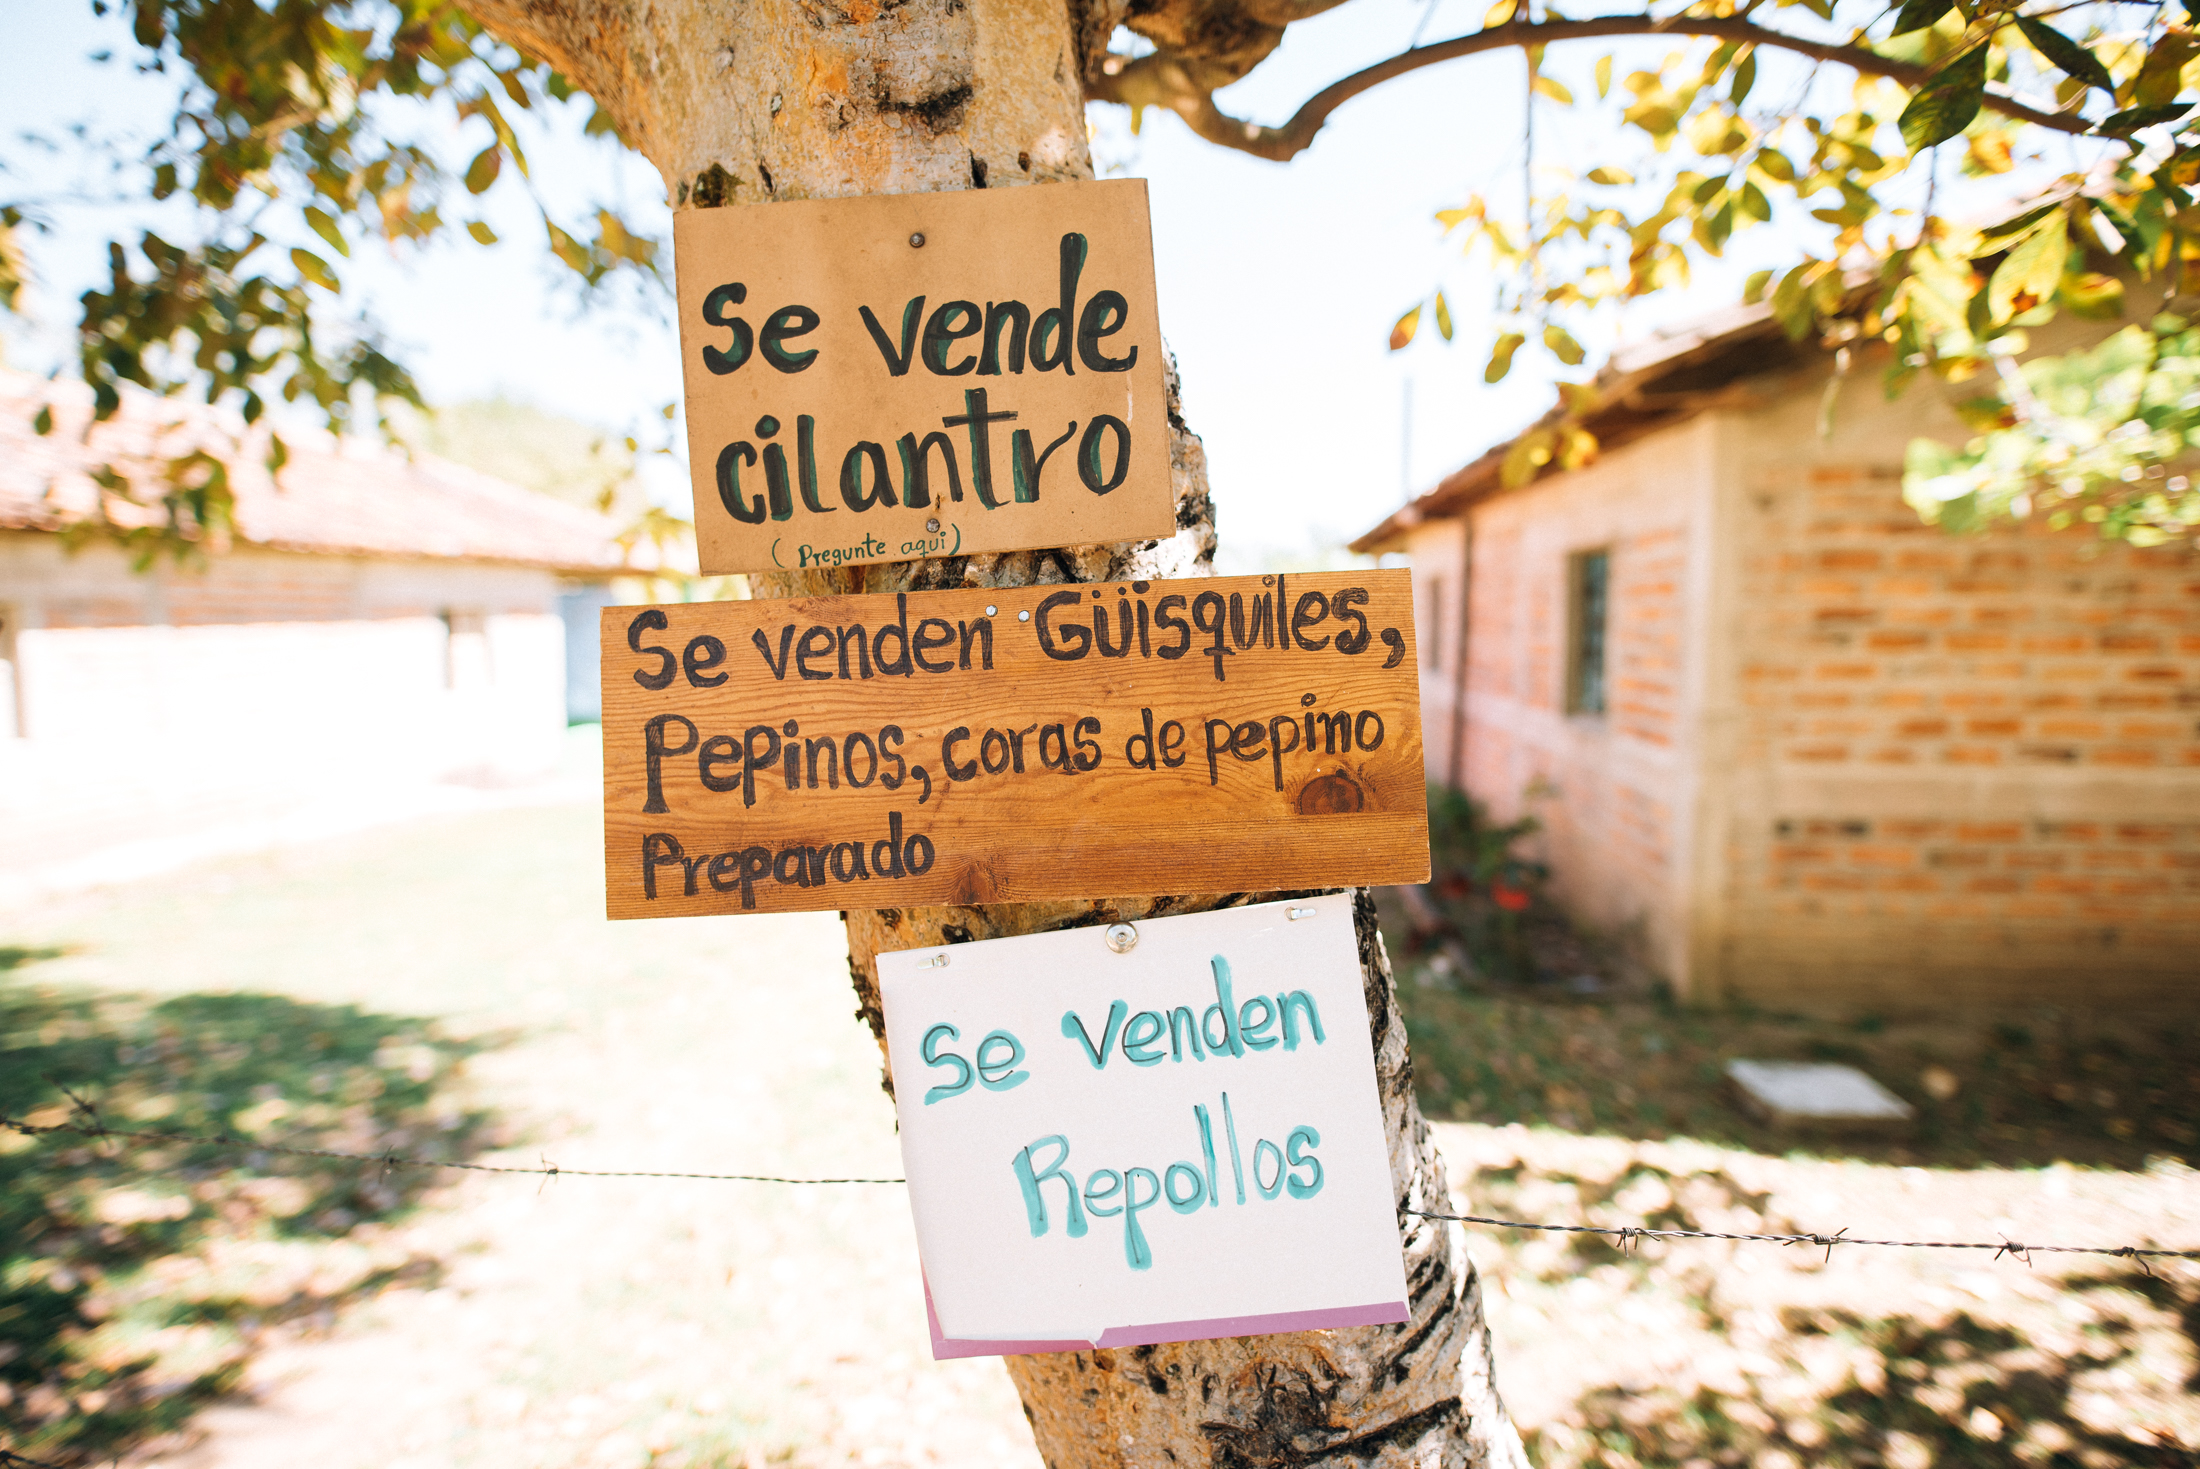 Se vende
cilantro
( Pregunte aqui)
Se venden Güisquiles,
Pepinos, coras de pepino
Preparado
Se venden
Repollos